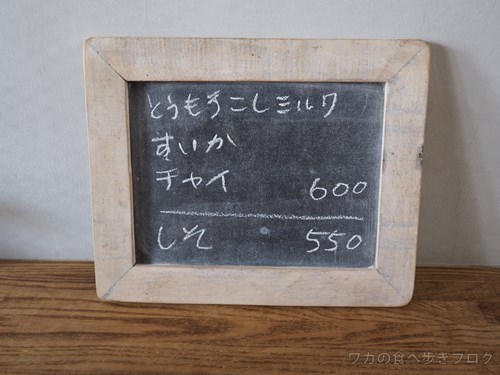 とうもろこしミルク
すいか
チャイ 600
しそ 550
ワカの食べ歩きブログ